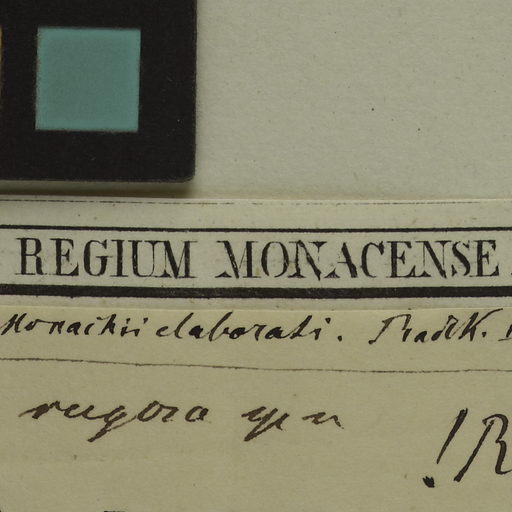 REGIUM MONACENSE
Monachii elaborati. Radlk.
rugosa
! R